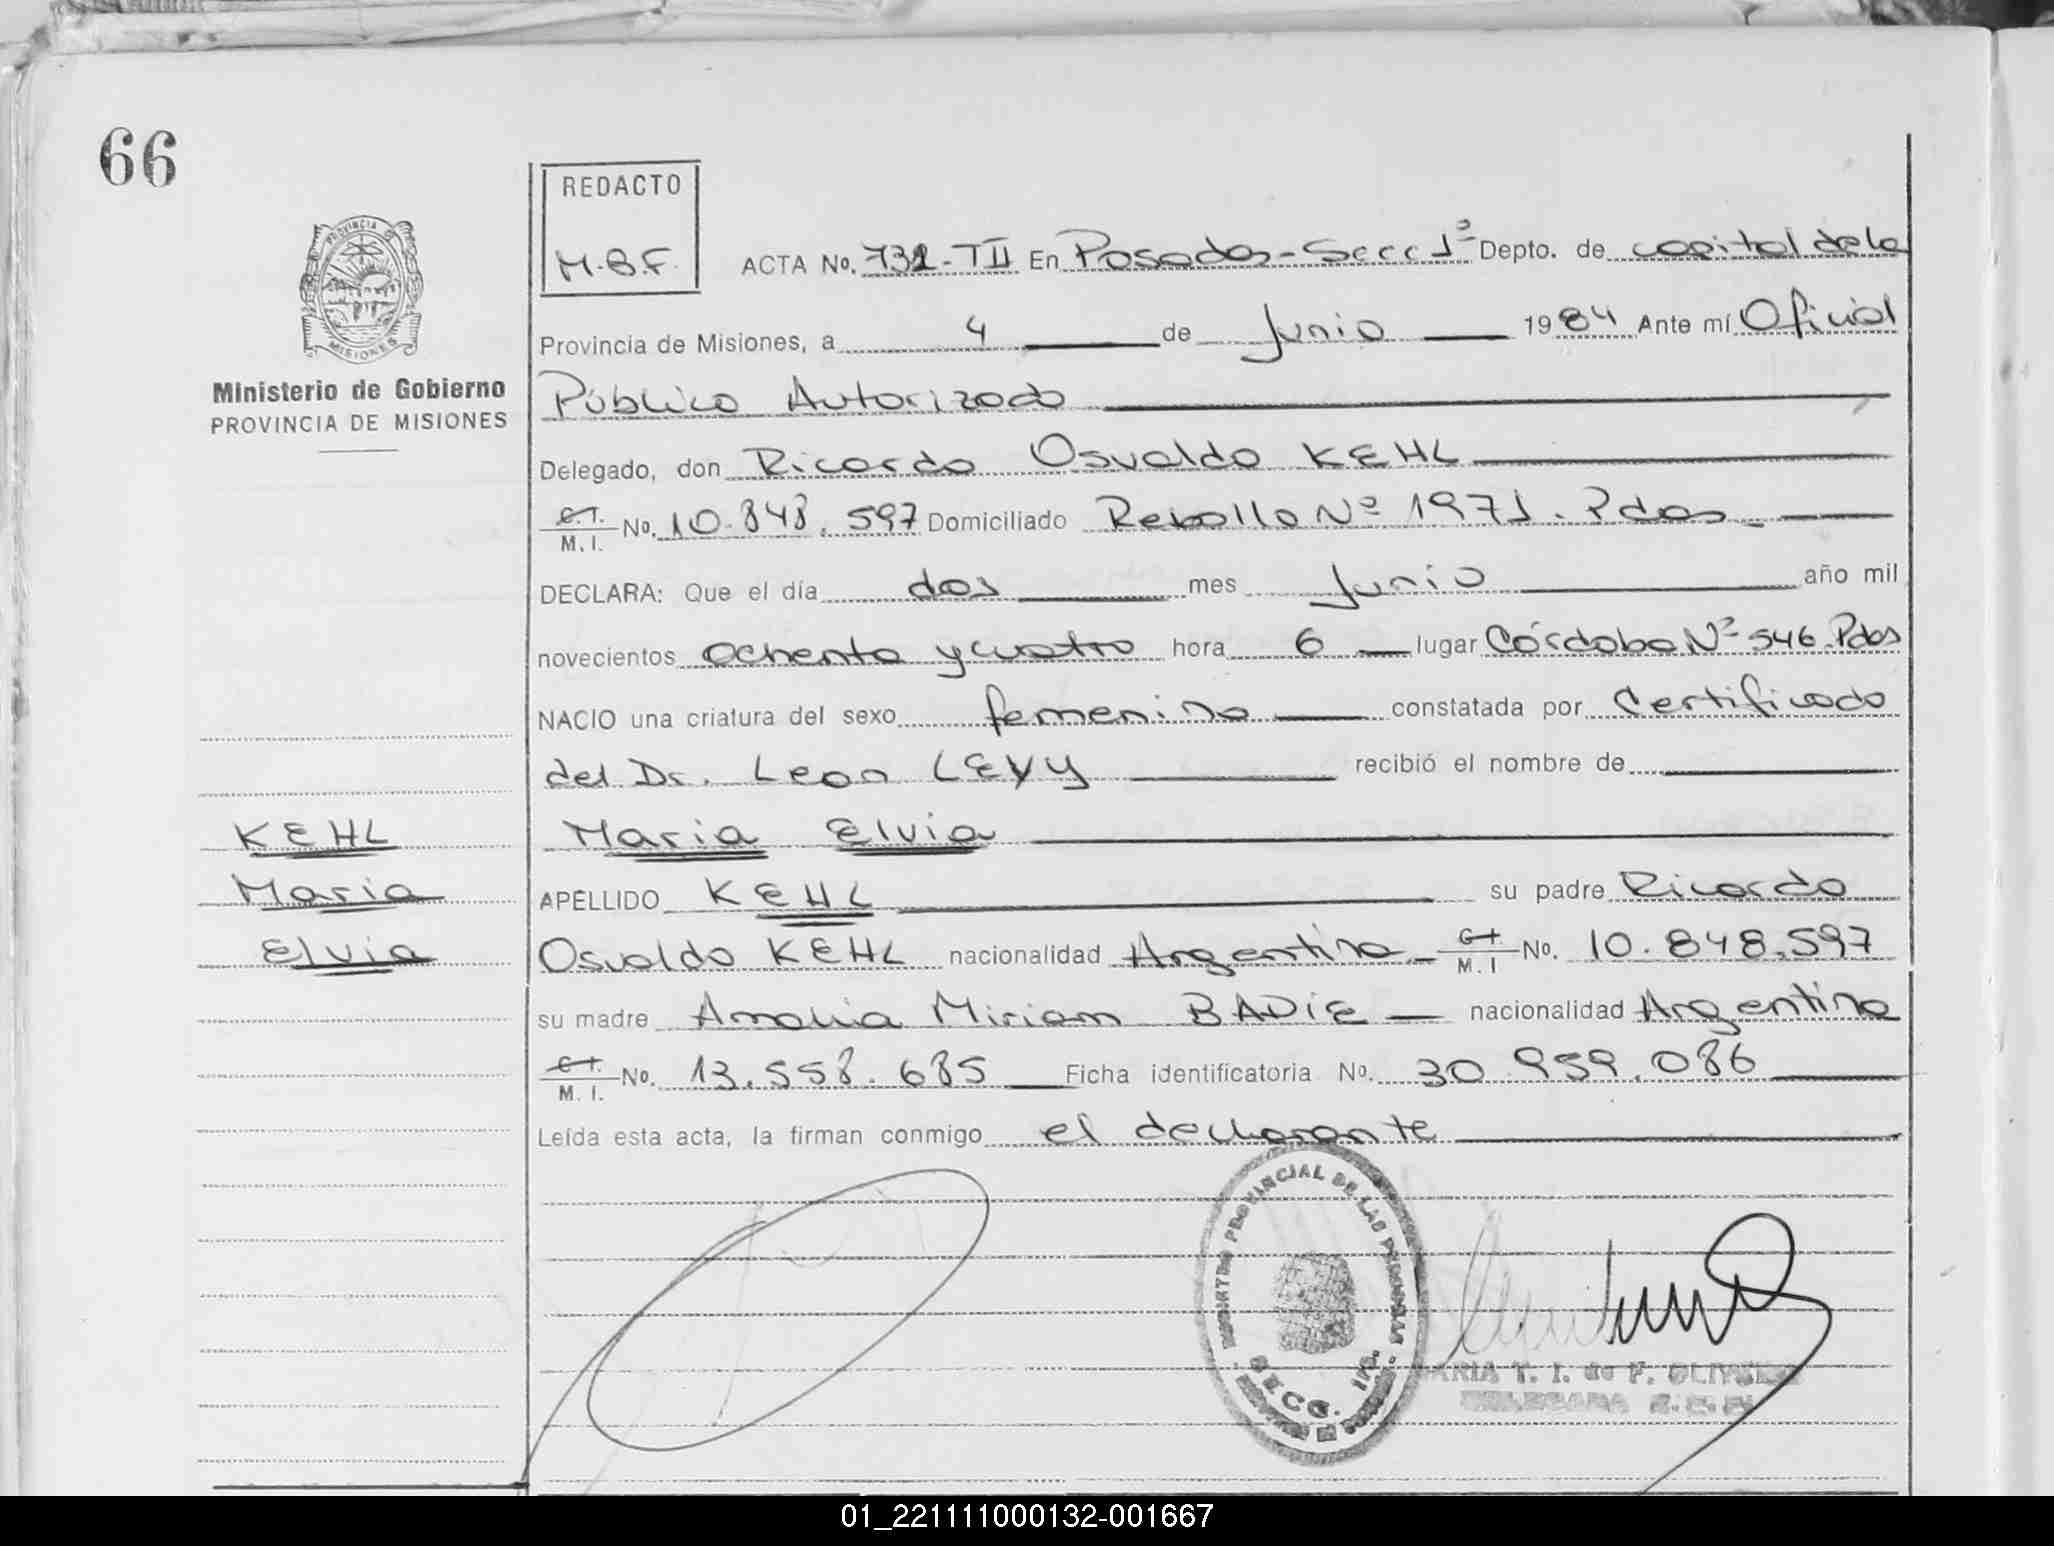 66
REDACTO
M.B.F.
PROVINCIA DE
MISIONES
Ministerio de Gobierno
PROVINCIA DE MISIONES
ACTA No. 732-TII En Posadas-Secc 1ª Depto. de capital de la
Provincia de Misiones, a 4 de Junio 1984 Ante mí Oficial
Público Autorizado
Delegado, don Ricardo Osvaldo KEHL
C.I. M.I. No. 10.848.597 Domiciliado Rebollo Nº 1971. Pdas.
DECLARA: Que el día dos mes Junio año mil
novecientos ochenta y cuatro hora 6 lugar Córdoba Nº 546. Pdas
NACIO una criatura del sexo femenino constatada por Certificado
del Dr. Leon LEVY recibió el nombre de
Maria Elvia
APELLIDO KEHL su padre Ricardo
Osvaldo KEHL nacionalidad Argentina C.I. M.I No. 10.848.597
su madre Amalia Miriam BADIE nacionalidad Argentina
C.I. M.I. No. 13.558.685 Ficha identificatoria No. 30.959.086
Leída esta acta, la firman conmigo el declarante
KEHL
Maria
Elvia
REGISTRO PROVINCIAL DE LAS PERSONAS
SECC. 1ra.
MARIA T. I. de F. OLIVEIRA
DELEGADA
01_221111000132-001667